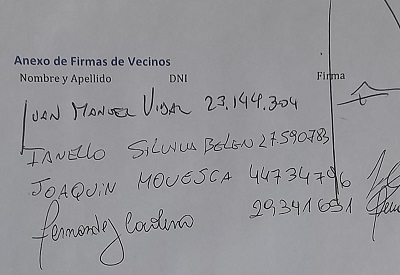 Anexo de Firmas de Vecinos
Nombre y Apellido DNI Firma
JUAN MANUEL VIDAL 23.144.304
IANELLO SILVINA BELEN 27.590.783
JOAQUIN MOVESCA 44734796
fernandez 29,341 691